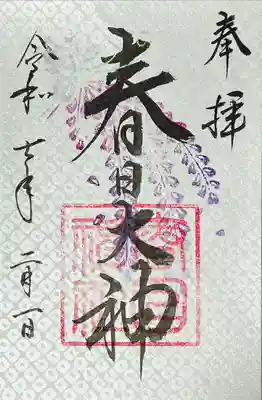 奉拝
春日大神
令和七年 二月一日